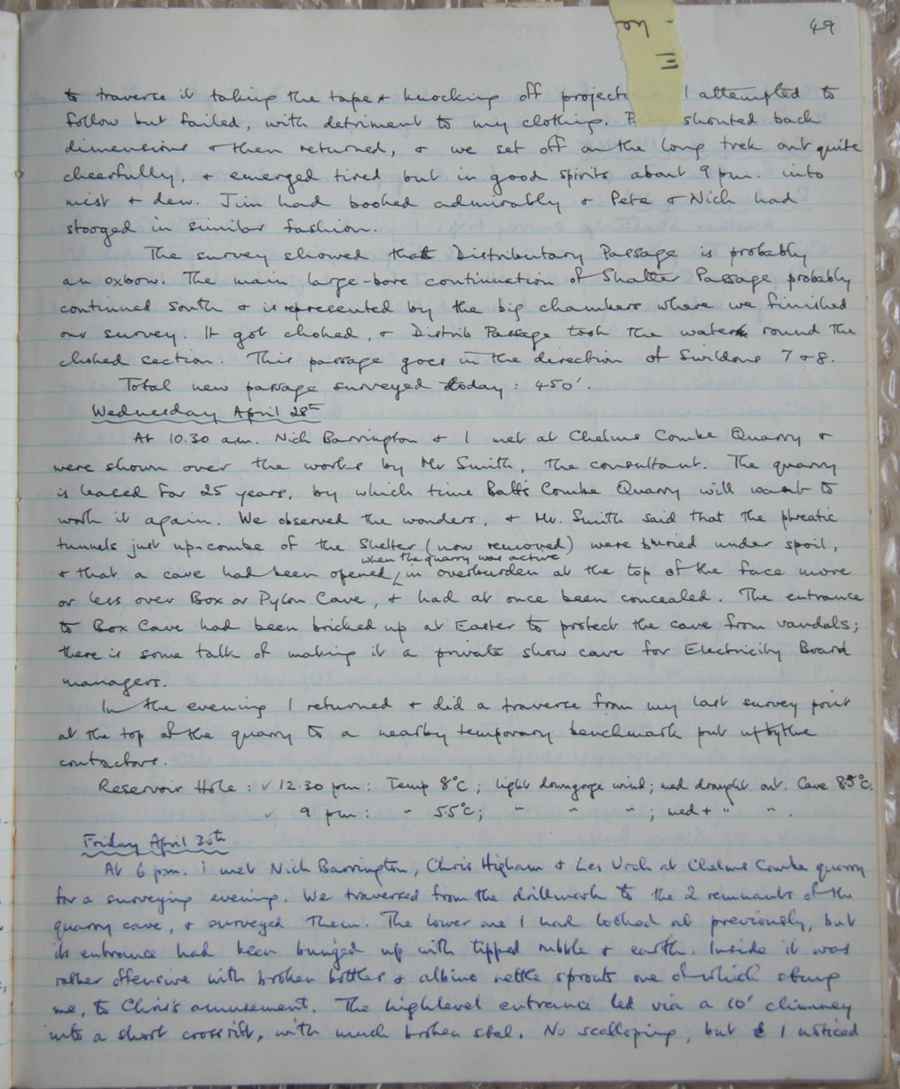 49
to traverse it taking the tape & knocking off project I attempted to
follow but failed, with detriment to my clothing. P shouted back
dimensions & then returned, & we set off on the long trek out quite
cheerfully, & emerged tired but in good spirits about 9 pm. into
mist & dew. Jim had booked admirably & Pete & Nich had
stooged in similar fashion.
The survey showed that Distributary Passage is probably
an oxbow. The main large-bore continuation of Shatter Passage probably
continued south & is represented by the big chambers where we finished
our survey. It got choked, & Distrib Passage took the water round the
choked section. This passage goes in the direction of Swildons 7 & 8.
Total new passage surveyed today: 450'.
Wednesday April 28th
At 10.30 a.m. Nich Barrington & I met at Chelms Combe Quarry &
were shown over the works by Mr Smith, the consultant. The quarry
is leased for 25 years, by which time Batts Combe Quarry will want to
work it again. We observed the wonders, & Mr. Smith said that the phreatic
tunnels just up-combe of the Shelter (now removed) were buried under spoil,
when the quarry was active
& that a cave had been opened in overburden at the top of the face more
or less over Box or Pylon Cave, & had at once been concealed. The entrance
to Box Cave had been bricked up at Easter to protect the cave from vandals;
there is some talk of making it a private show cave for Electricity Board
managers.
In the evening I returned & did a traverse from my last survey point
at the top of the quarry to a nearby temporary benchmark put up by the
contactors.
Reservoir Hole: ✓ 12.30 pm: Temp 8°C; light downgorge wind; med draught out. Cave 8.5°C.
✓ 9 pm: " 5.5°C; " " " ; med+ " " .
Friday April 30th
At 6 pm. I met Nich Barrington, Chris Higham & Les at Chelms Combe quarry
for a surveying evening. We traversed from the drillmark to the 2 remnants of the
quarry cave, & surveyed them. The lower one I had looked at previously, but
its entrance had been bunged up with tipped rubble & earth. Inside it was
rather offensive with broken bottles & albino nettle sprouts one of which stung
me, to Chris's amusement. The highlevel entrance led via a 10' chimney
into a short cross rift, with much broken stal. No scalloping, but I noticed